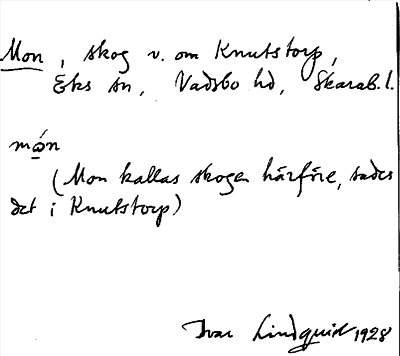 Mon, skog v. om Knutstorp,
Eks sn, Vadsbo hd, Skarab. l.
mo̱n
(Mon kallas skogen härföre, sades
det i Knutstorp)
Ivar Lindquist 1928